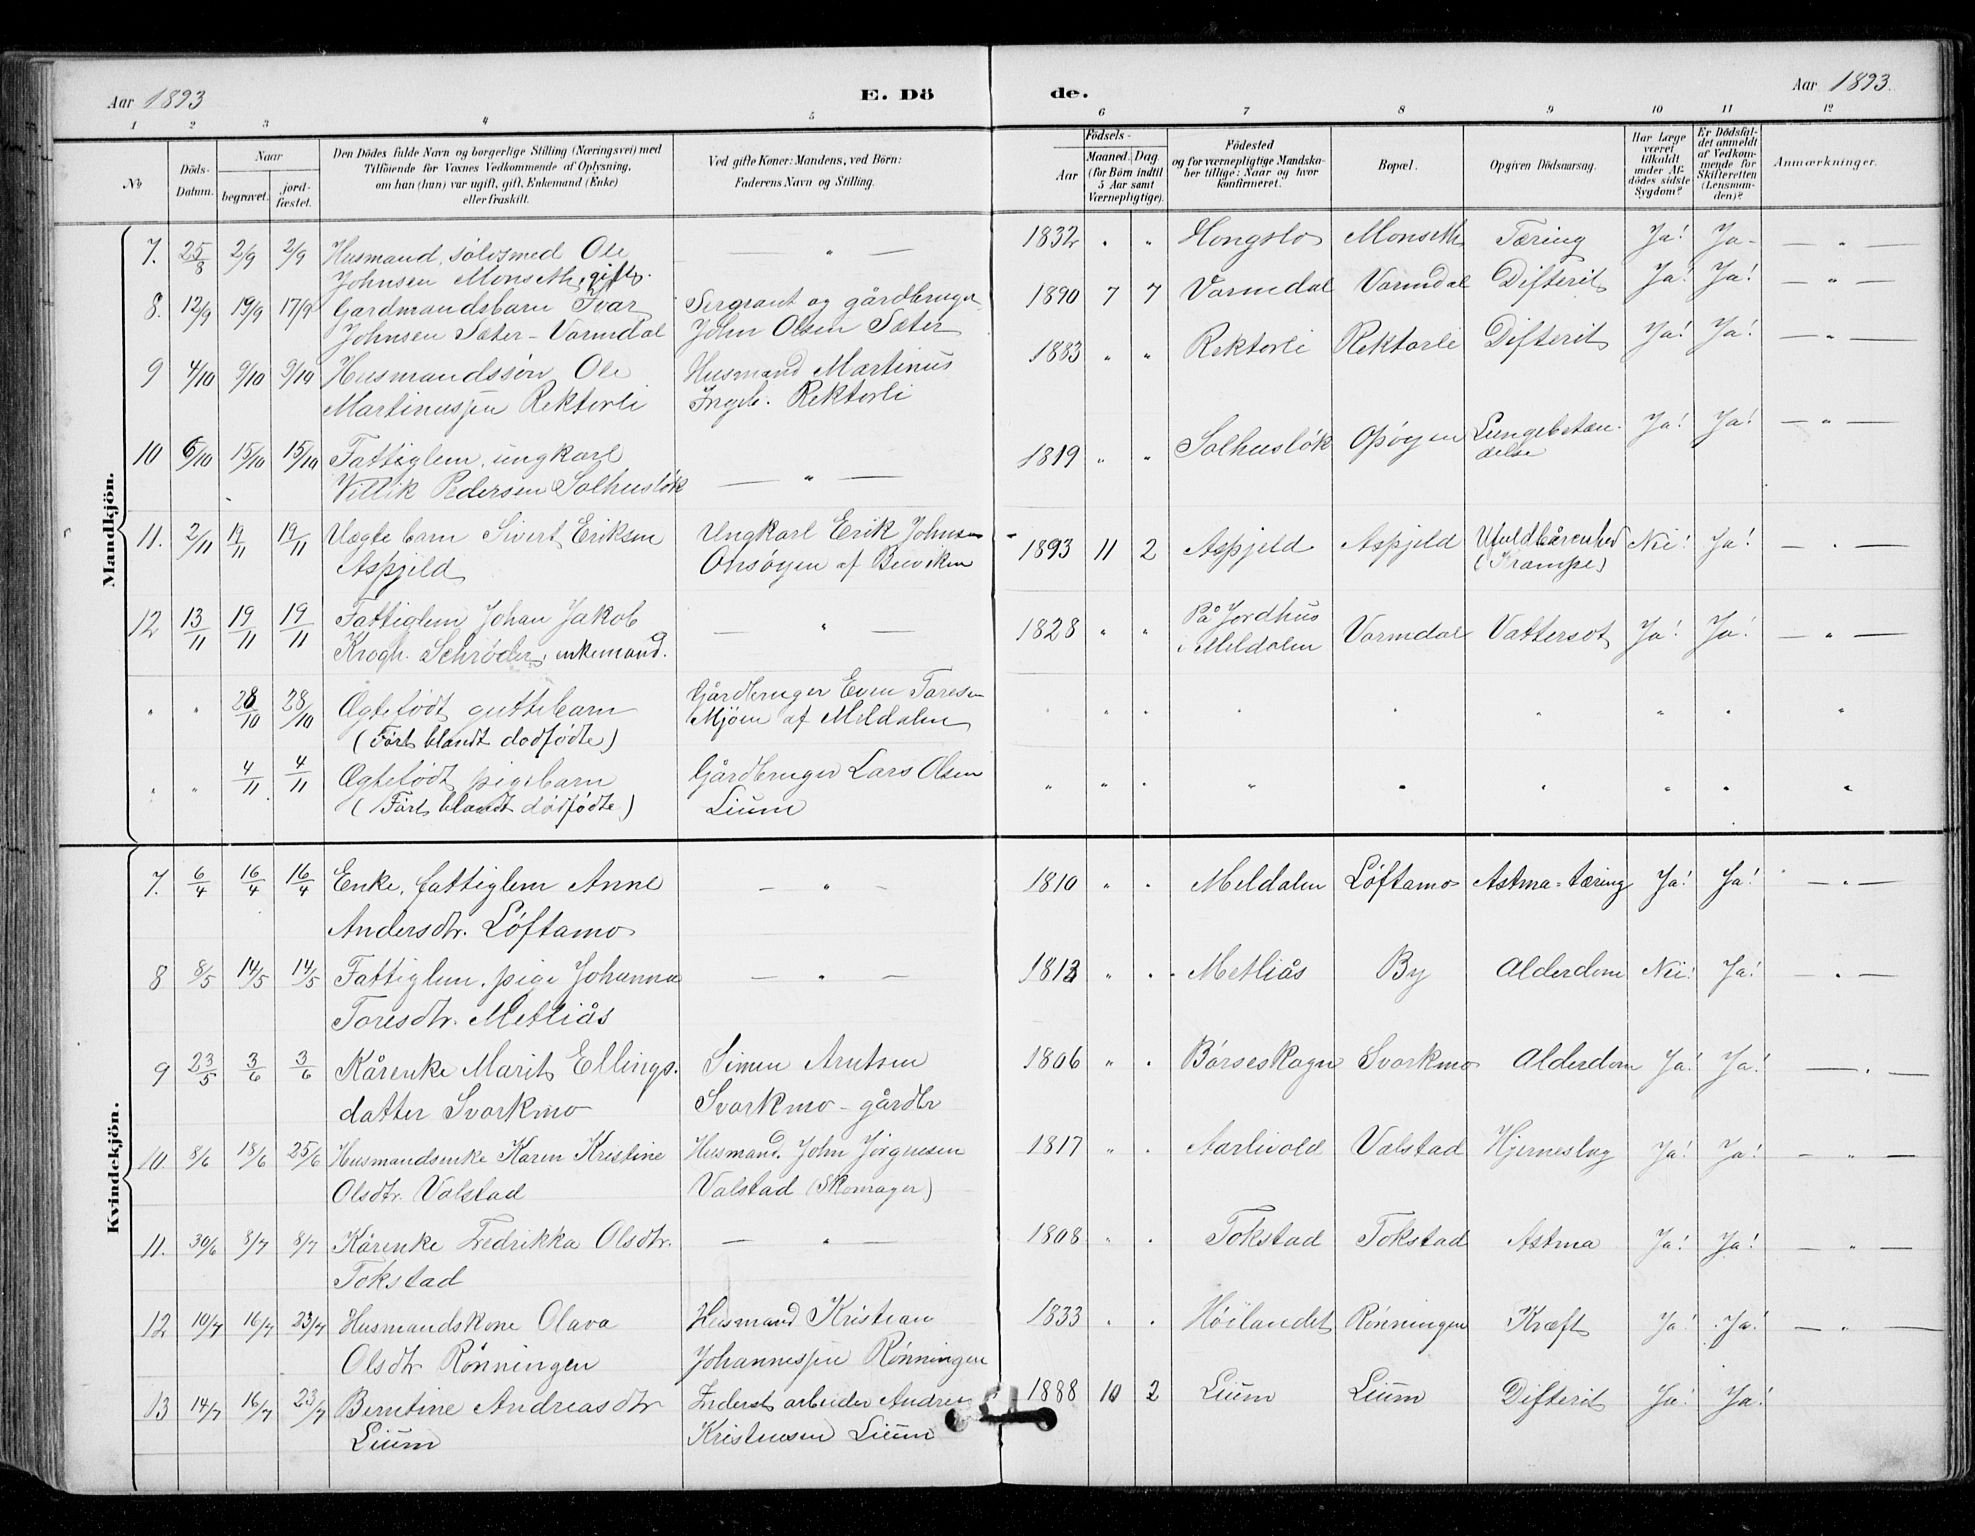 Aar 1893
E. Dö
de.
Aar 1893.
1 2 3 4 5 6 7 8 9 10 11 12
No
Döds-
Datum.
Naar
begravet.
jord-
fæstet.
Den Dödes fulde Navn og borgerlige Stilling (Næringsvei) med
Tilföiende for Voxnes Vedkommende af Oplysning,
om han (hun) var ugift, gift, Enkemand (Enke)
eller fraskilt.
Ved gifte Koner: Mandens, ved Börn:
Faderens Navn og Stilling.
Födsels-
Aar
Maaned. Dag.
(for Börn indtil
5 Aar samt
Værnepligtige).
Födested
og for værnepligtige Mandska-
ber tillige: Naar og hvor
konfirmeret.
Bopæl.
Opgiven Dödsaarsag.
Har Læge
været
tilkaldt
under Af-
dödes sidste
Sygdom?
Er Dödsfal-
det anmeldt
af Vedkom-
mende for
Skifteretten
(Lensman-
den)?
Anmærkninger.
Mandkjön.
7. 25/8 2/9 2/9 Husmand, sølvsmed Ole — " — 1832 " " Hongslo Monseth Tæring Ja! Ja- — " —
Johnsen Monseth, gift.
8. 12/9 19/9 17/9 Gardmandsbarn Ivar Sergeant og gårdbruger 1890 7 7 Vormdal Vormdal Difterit Ja! Ja! — " —
Johnsen Sæter-Vormdal John Olsen Sæter
9 4/10 9/10 9/10 Husmandssön Ole Husmand Martinus 1883 " " Rektorli Rektorli Difterit Ja! Ja! — " —
Martinussen Rektorli Ingeb. Rektorli
10 6/10 15/10 15/10 Fattiglem, ungkarl — " — 1819 " " Solhusløk Opøyen Lungebetæn- Ja! Ja! — " —
Villik Pedersen Solhusløk delse
11. 2/11 19/11 19/11 Uægte barn Sivert Eriksen Ungkarl Erik Johnsen 1893 11 2 Aspjeld Aspjeld Ufuldbårenhed Nei! Ja! — " —
Aspjeld af (Krampe)
12 13/11 19/11 19/11 Fattiglem Johan Jakob — " — 1828 " " På Jordhus Vormdal Vattersot Ja! Ja! — " —
Krogh Schrøder, enkemand. i Meldalen
" " 28/10 28/10 Ægtefødt guttebarn Gårdbruger Even Toresen " " " " " " " " "
(Ført blandt dødfødte) Mjöen af Meldalen
" " 4/11 4/11 Ægtefødt pigebarn Gårdbruger Lars Olsen " " " " " " " " "
(Ført blandt dødfødte) Lium
Kvindekjön.
7. 6/4 16/4 16/4 Enke, fattiglem Anne — " — 1810 " " Meldalen Løftamo Astma-tæring Ja! Ja! — " —
Andersdtr. Løftamo
8 8/5 14/5 14/5 Fattiglem, pige Johanna — " — 1813 " " Metliås By Alderdom Nei! Ja! — " —
Toresdtr. Metliås
9 23/5 3/6 3/6 Kårenke Marit Ellings- Simen Arntsen 1806 " " Børseskogn Svorkmo Alderdom Ja! Ja! — " —
datter Svorkmo Svorkmo - gårdbr
10. 8/6 18/6 25/6 Husmandsenke Karen Kristine Husmand John Jørgensen 1817 " " Aarlivold Valstad Hjerneslag Ja! Ja! — " —
Olsdtr. Valstad Valstad (Skomager)
11. 30/6 8/7 8/7 Kårenke Fredrikka Olsdtr. — " — 1808 " " Tokstad Tokstad Astma Ja! Ja! — " —
Tokstad
12 10/7 16/7 23/7 Husmandskone Olava Husmand Kristian 1833 " " Høilandet Rönningen Kræft Ja! Ja! — " —
Olsdtr Rönningen Johannessen Rönningen
13 14/7 16/7 23/7 Berntine Andreasdtr Inderst arbeider Andreas 1888 10 2 Lium Lium Difterit Ja! Ja!
Lium Kristensen Lium